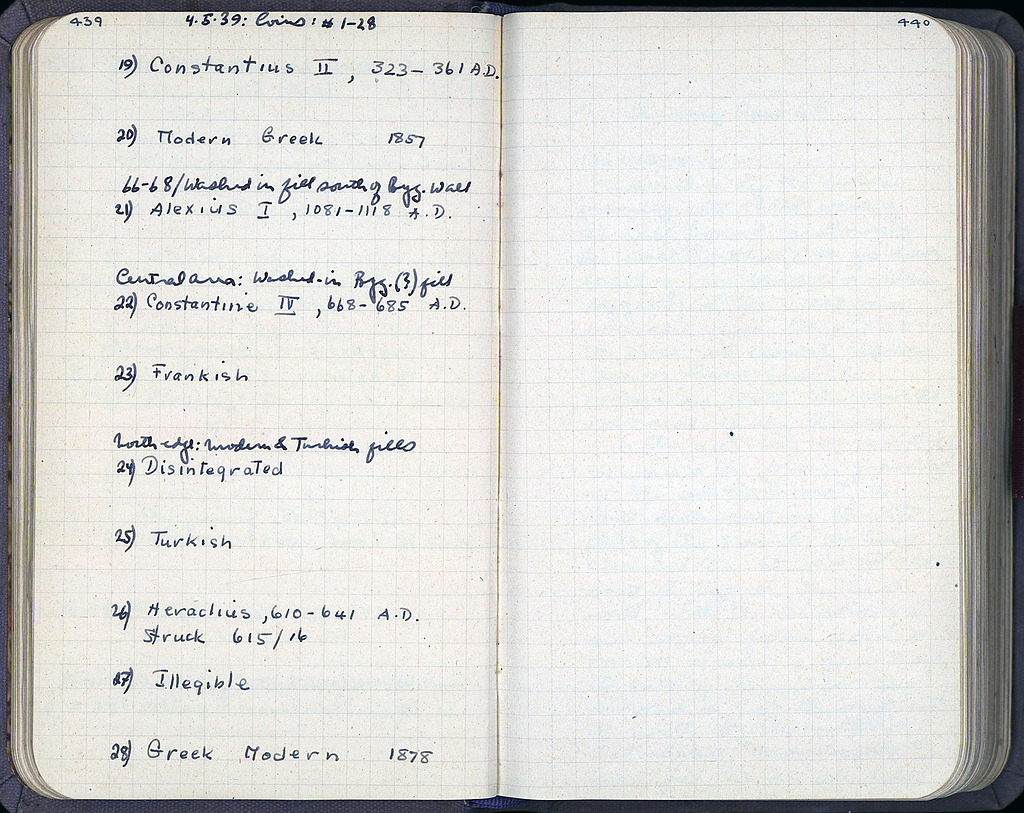 439
4.5.39: Coins: #1-28
19) Constantius II, 323-361 A.D.
20) Modern Greek 1857
66-68/Washed in fill south of Byz. Wall
21) Alexius I, 1081-1118 A.D.
Central area: Washed-in Byz. (?) fill
22) Constantine IV, 668-685 A.D.
23) Frankish
North edge: modern & Turkish fills
24) Disintegrated
25) Turkish
26) Heraclius, 610-641 A.D.
Struck 615/16
27) Illegible
28) Greek Modern 1878
440